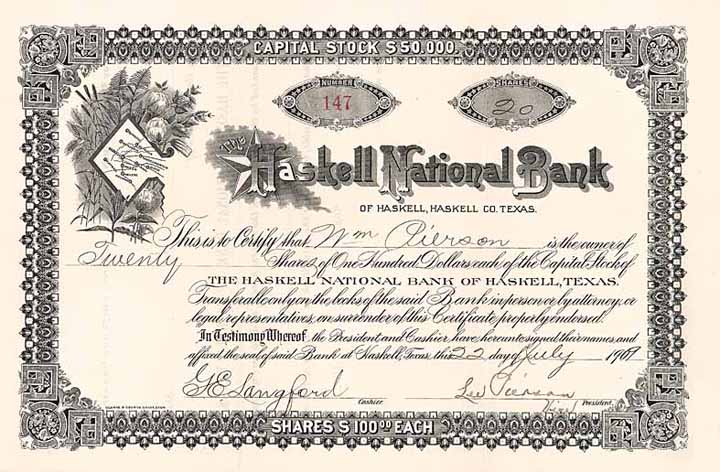 CAPITAL STOCK $50.000.
NUMBER
147
SHARES
20
The Haskell National Bank
OF HASKELL, HASKELL CO. TEXAS.
This is to Certify that Wm Pierson is the owner of
Twenty Shares of One Hundred Dollars each of the Capital Stock of
THE HASKELL NATIONAL BANK OF HASKELL, TEXAS.
Transferable only on the books of the said Bank in person or by attorney, or
legal representatives, on surrender of this Certificate properly endorsed.
In Testimony Whereof, the President and Cashier have hereunto signed their names, and
affixed the seal of said Bank at Haskell, Texas, this 22 day of July 1907
G.E. Langford Cashier. Lee Pierson President.
SHARES $100.00 EACH